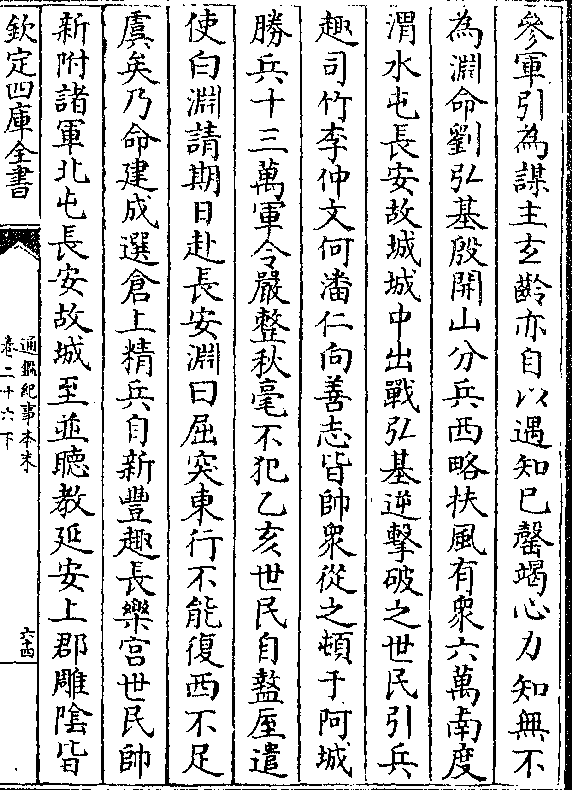 參軍引為謀主玄齡亦自以遇知已罄竭心力知無不
為淵命劉弘基殷開山分兵西略扶風有衆六萬南度
渭水屯長安故城城中出戰弘基逆擊破之世民引兵
趣司竹李仲文何潘仁向善志皆帥衆從之頓于阿城
勝兵十三萬軍令嚴整秋毫不犯乙亥世民自盩厔遣
使白淵請期日赴長安淵曰屈突東行不能復西不足
虞矣乃命建成選倉上精兵自新豐趣長樂宫世民帥
新附諸軍北屯長安故城至並聽教延安上郡雕隂皆
欽定四庫全書
通鑑紀事本末
卷二十六下
六四